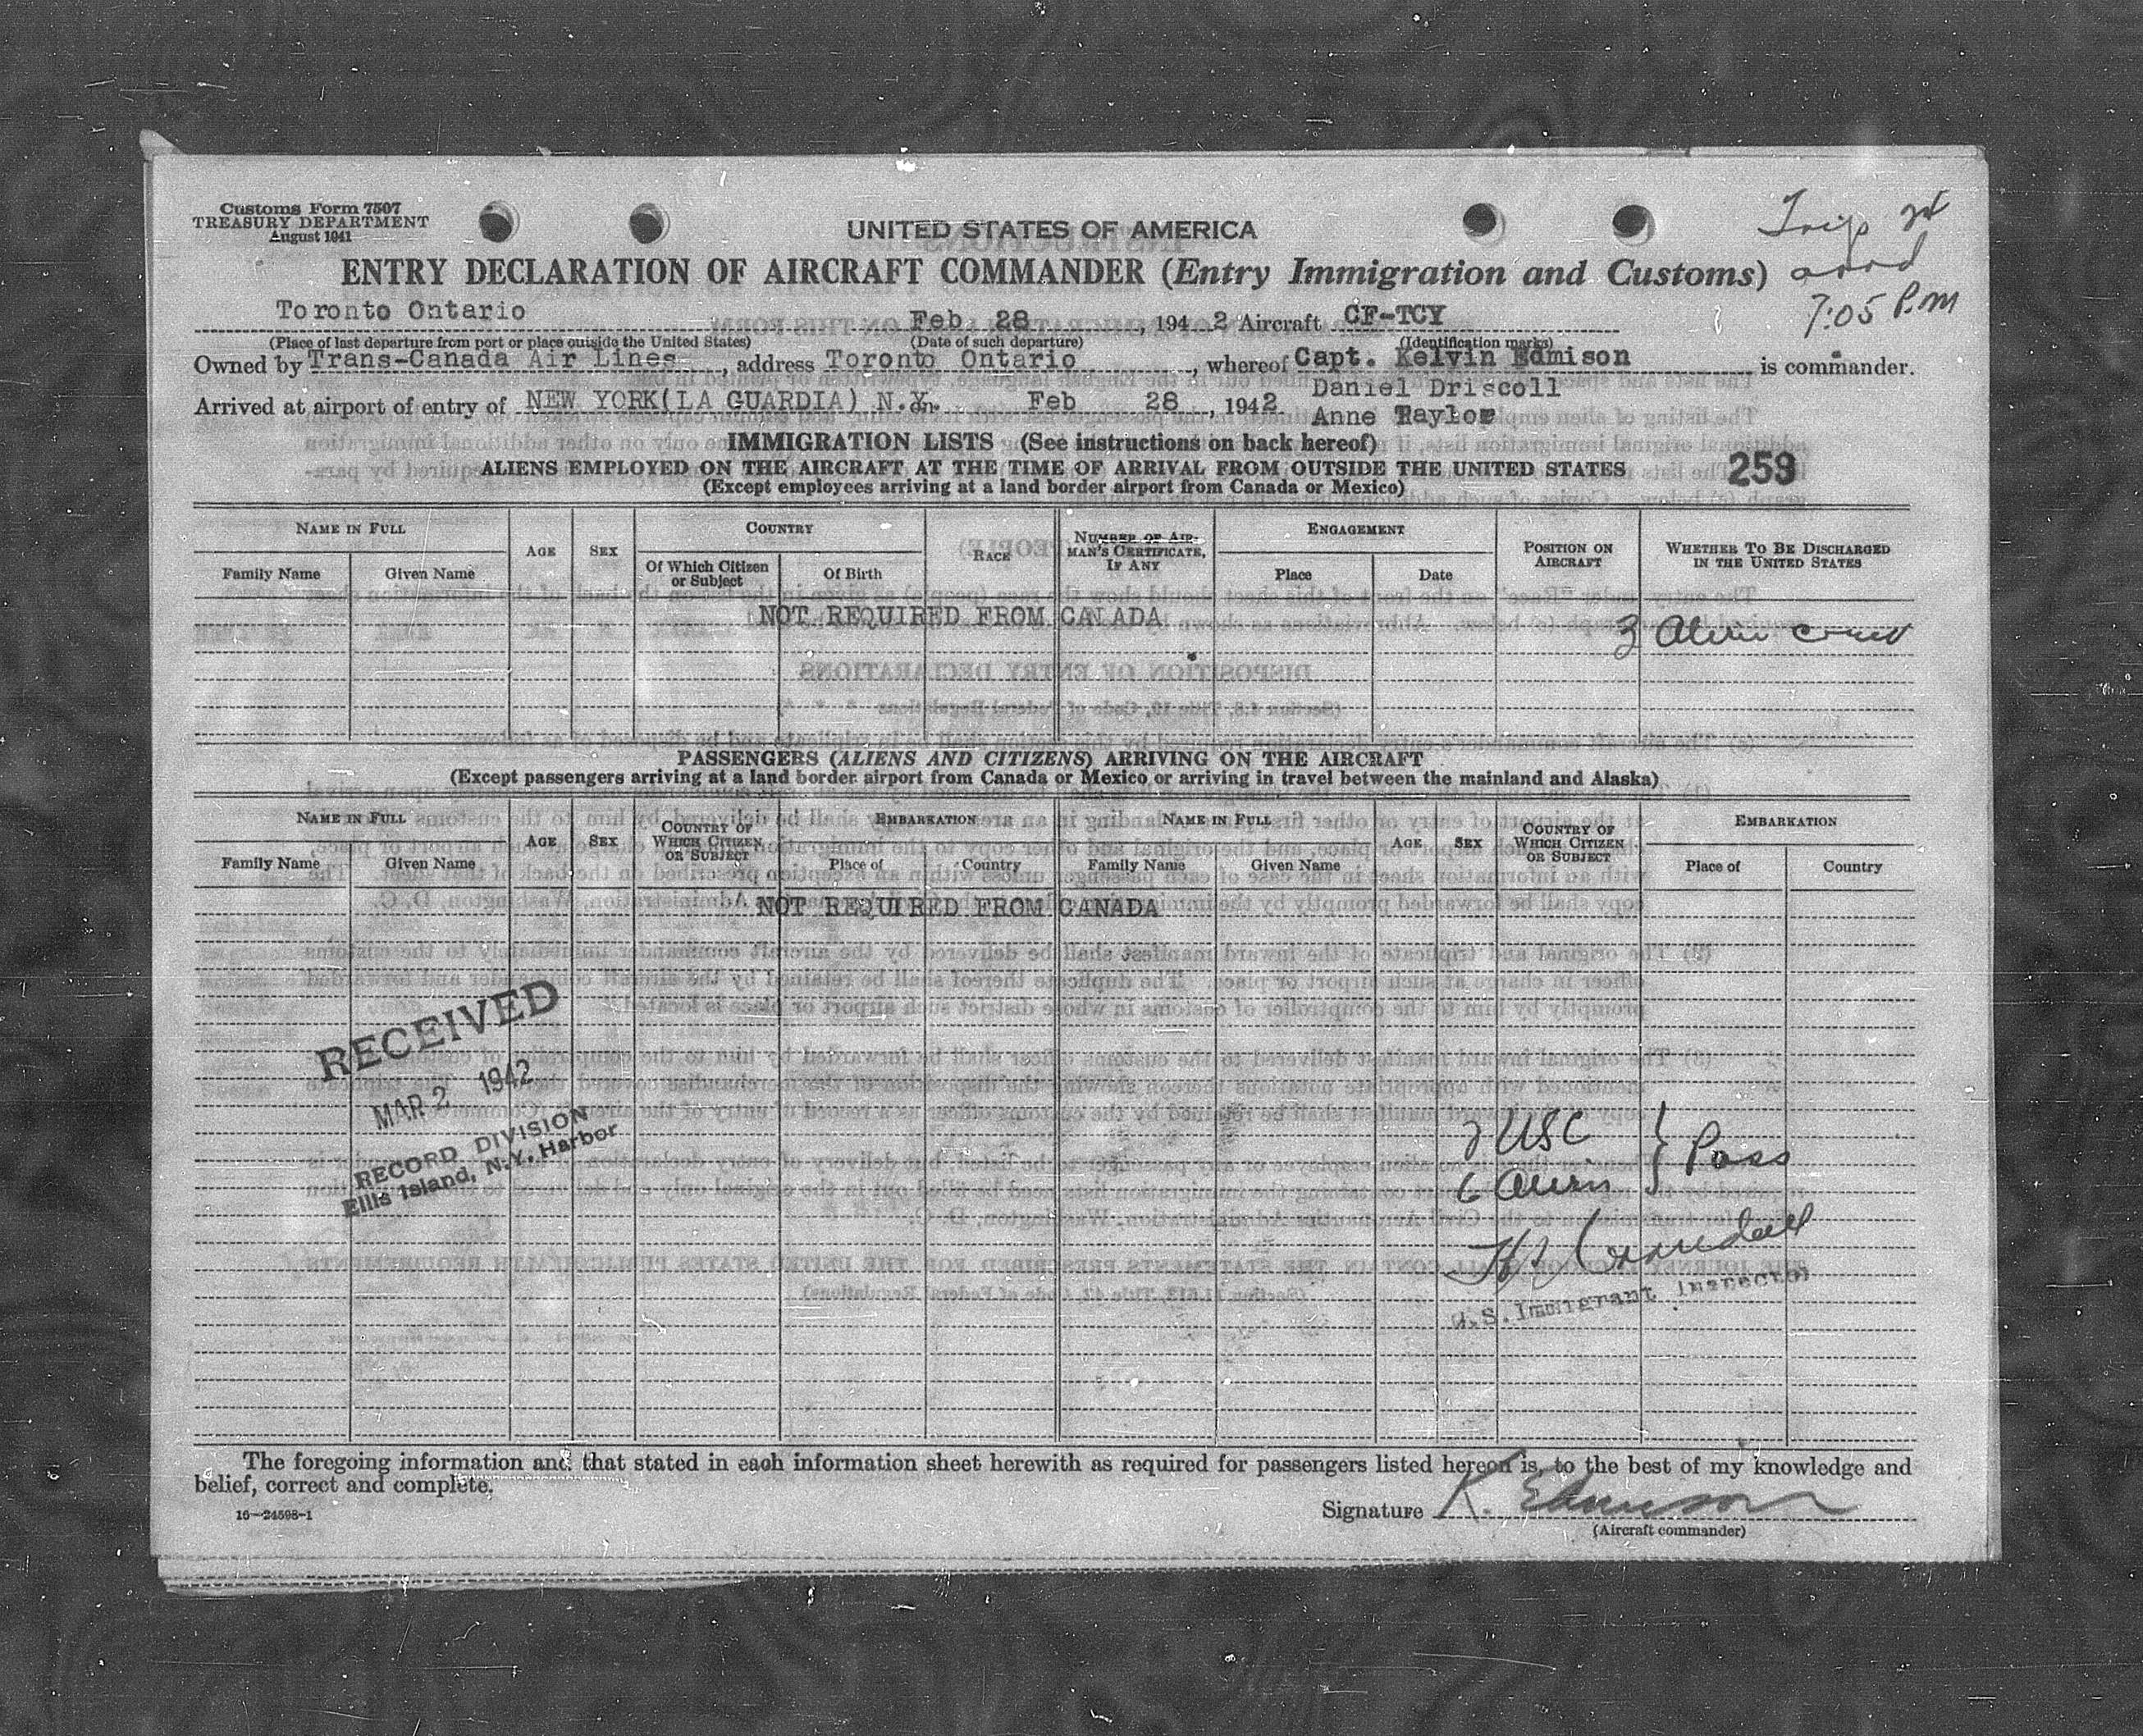 Customs Form 7507
TREASURY DEPARTMENT
August 1941
UNITED STATES OF AMERICA
ENTRY DECLARATION OF AIRCRAFT COMMANDER (Entry Immigration and Customs)
Trip
7:05 P.M
Toronto Ontario Feb 28, 1942 Aircraft CF-TCY
(Place of last departure from port or place outside the United States) (Date of such departure) (Identification marks)
Owned by Trans-Canada Air Lines, address Toronto Ontario, whereof Capt. Kelvin Edmison is commander.
Daniel Driscoll
Arrived at airport of entry of NEW YORK(LA GUARDIA) N.Y. Feb 28, 1942 Anne Taylor
IMMIGRATION LISTS (See instructions on back hereof)
ALIENS EMPLOYED ON THE AIRCRAFT AT THE TIME OF ARRIVAL FROM OUTSIDE THE UNITED STATES 259
(Except employees arriving at a land border airport from Canada or Mexico)
NAME IN FULL AGE SEX COUNTRY RACE NUMBER OF AIRMAN'S CERTIFICATE, IF ANY ENGAGEMENT POSITION ON AIRCRAFT WHETHER TO BE DISCHARGED IN THE UNITED STATES
Family Name Given Name Of Which Citizen or Subject Of Birth Place Date
NOT REQUIRED FROM CANADA
3 Alien crew
PASSENGERS (ALIENS AND CITIZENS) ARRIVING ON THE AIRCRAFT
(Except passengers arriving at a land border airport from Canada or Mexico or arriving in travel between the mainland and Alaska)
NAME IN FULL AGE SEX COUNTRY OF WHICH CITIZEN OR SUBJECT EMBARKATION NAME IN FULL AGE SEX COUNTRY OF WHICH CITIZEN OR SUBJECT EMBARKATION
Family Name Given Name Place of Country Family Name Given Name Place of Country
NOT REQUIRED FROM CANADA
RECEIVED
MAR 2 1942
RECORD DIVISION
Ellis Island, N.Y. Harbor
7 USC
6 Alien } Pass
U.S. Immigrant Inspector
The foregoing information and that stated in each information sheet herewith as required for passengers listed hereon is, to the best of my knowledge and
belief, correct and complete.
16—24598-1
Signature K. Edmison
(Aircraft commander)